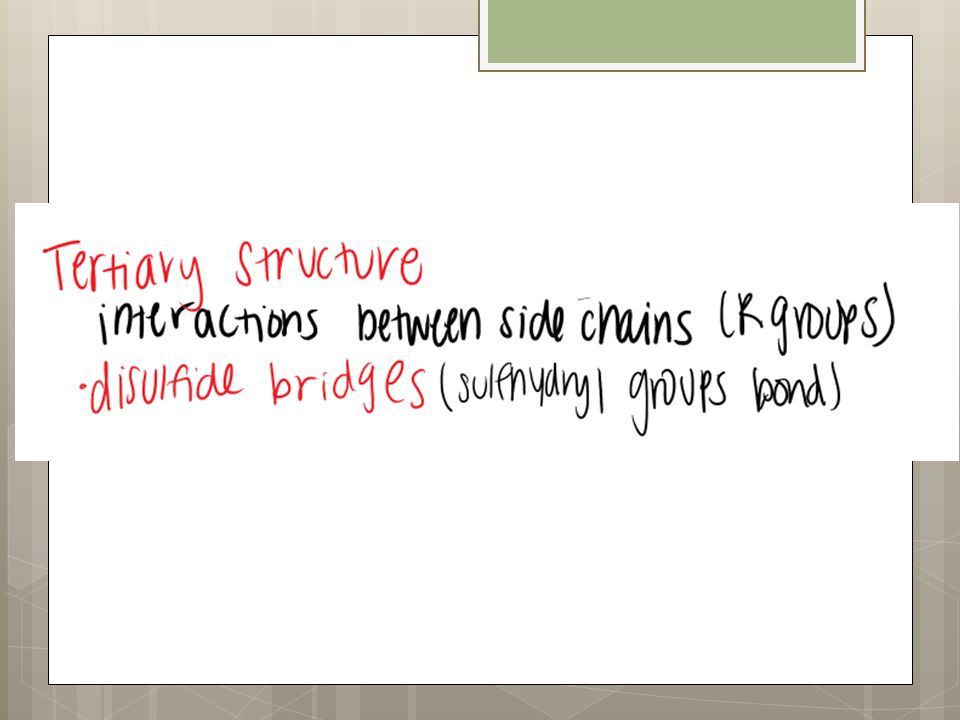 Tertiary Structure
interactions between side chains (R groups)
·disulfide bridges (sulfhydryl groups bond)